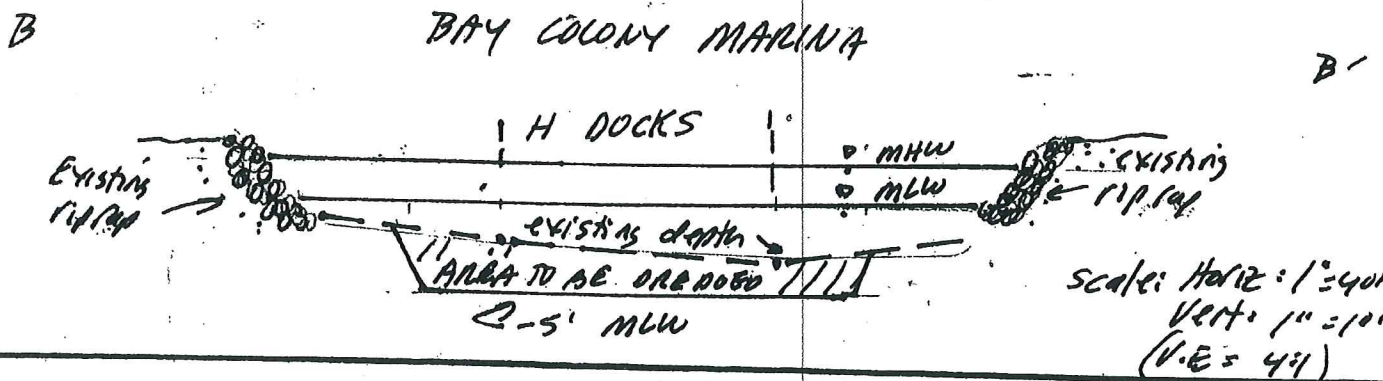 B
BAY COLONY MARINA
B'
H DOCKS
MHW
MLW
Existing
riprap
existing
riprap
existing depth
AREA TO BE DREDGED
-5' MLW
Scale: Horiz: 1"=40'
Vert: 1"=10'
(V.E = 4:1)